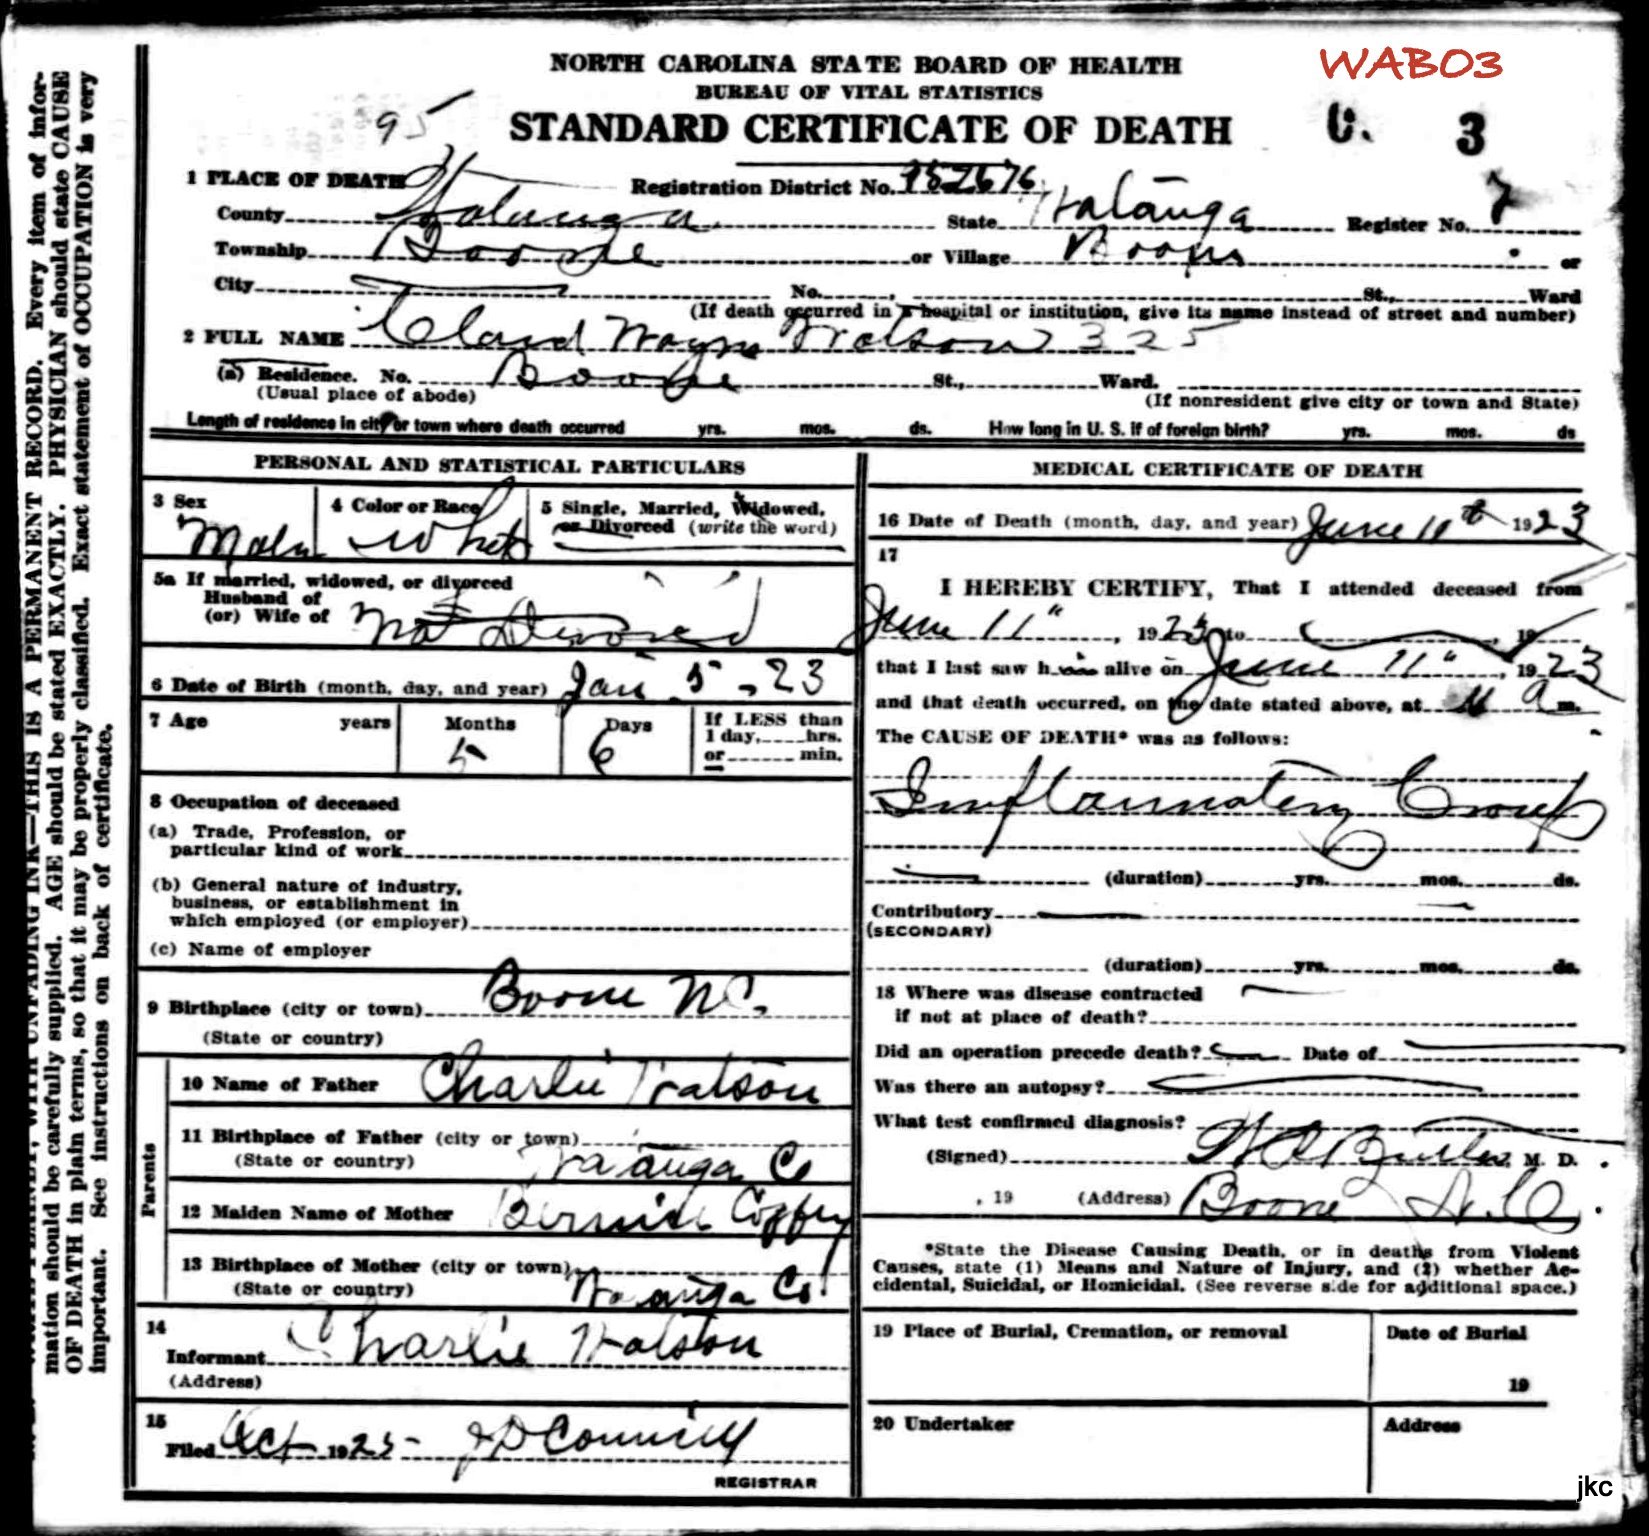 WAB03
NORTH CAROLINA STATE BOARD OF HEALTH
BUREAU OF VITAL STATISTICS
95
STANDARD CERTIFICATE OF DEATH
C. 3
1 PLACE OF DEATH
Registration District No.
County Watauga State Watauga Register No. 7
Township Boone or Village Boone or
City No. , St., Ward
(If death occurred in a hospital or institution, give its name instead of street and number)
2 FULL NAME Claud Wayne Watson 325
(a) Residence. No. Boone St., Ward.
(Usual place of abode) (If nonresident give city or town and State)
Length of residence in city or town where death occurred yrs. mos. ds. How long in U. S. if of foreign birth? yrs. mos. ds
PERSONAL AND STATISTICAL PARTICULARS
3 Sex 4 Color or Race 5 Single, Married, Widowed,
or Divorced (write the word)
Male White
5a If married, widowed, or divorced
Husband of
(or) Wife of
6 Date of Birth (month, day, and year) Jan 5 - 23
7 Age years Months Days If LESS than
1 day, hrs.
5 6 or min.
8 Occupation of deceased
(a) Trade, Profession, or
particular kind of work
(b) General nature of industry,
business, or establishment in
which employed (or employer)
(c) Name of employer
9 Birthplace (city or town) Boone N.C.
(State or country)
Parents
10 Name of Father Charlie Watson
11 Birthplace of Father (city or town)
(State or country) Watauga Co
12 Maiden Name of Mother Bernice Coffey
13 Birthplace of Mother (city or town)
(State or country) Watauga Co.
14
Informant Charlie Watson
(Address)
15
Filed Oct 1925
REGISTRAR
MEDICAL CERTIFICATE OF DEATH
16 Date of Death (month, day, and year) June 11th 1923
17
I HEREBY CERTIFY, That I attended deceased from
June 11", 1923 to , 19
that I last saw him alive on June 11", 1923
and that death occurred, on the date stated above, at 11 a m.
The CAUSE OF DEATH* was as follows:
Inflammatory Croup
(duration) yrs. mos. ds.
Contributory
(SECONDARY)
(duration) yrs. mos. ds.
18 Where was disease contracted
if not at place of death?
Did an operation precede death? Date of
Was there an autopsy?
What test confirmed diagnosis?
(Signed) M. D.
, 19 (Address) Boone N.C.
*State the Disease Causing Death, or in deaths from Violent
Causes, state (1) Means and Nature of Injury, and (2) whether Ac-
cidental, Suicidal, or Homicidal. (See reverse side for additional space.)
19 Place of Burial, Cremation, or removal Date of Burial
19
20 Undertaker Address
jkc
mation should be carefully supplied. AGE should be stated EXACTLY. PHYSICIAN should state CAUSE
OF DEATH in plain terms, so that it may be properly classified. Exact statement of OCCUPATION is very
important. See instructions on back of certificate.
WITH UNFADING INK—THIS IS A PERMANENT RECORD. Every item of infor-